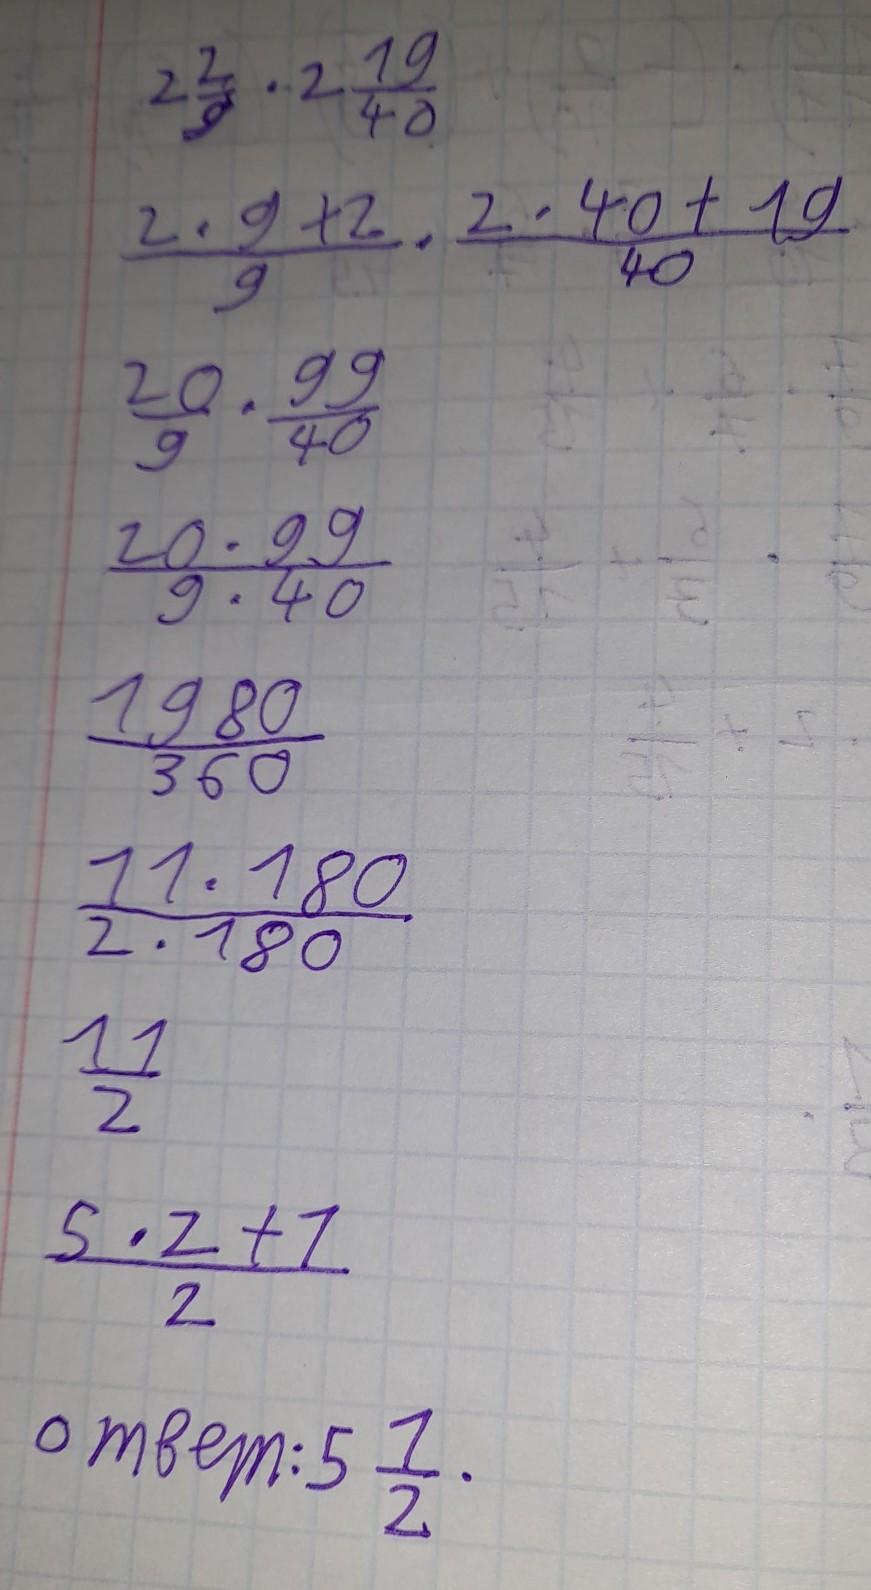 2 2/9 · 2 19/40
2·9+2/9 · 2·40+19/40
20/9 · 99/40
20·99/9·40
1980/360
11·180/2·180
11/2
5·2+1/2
ответ: 5 1/2.